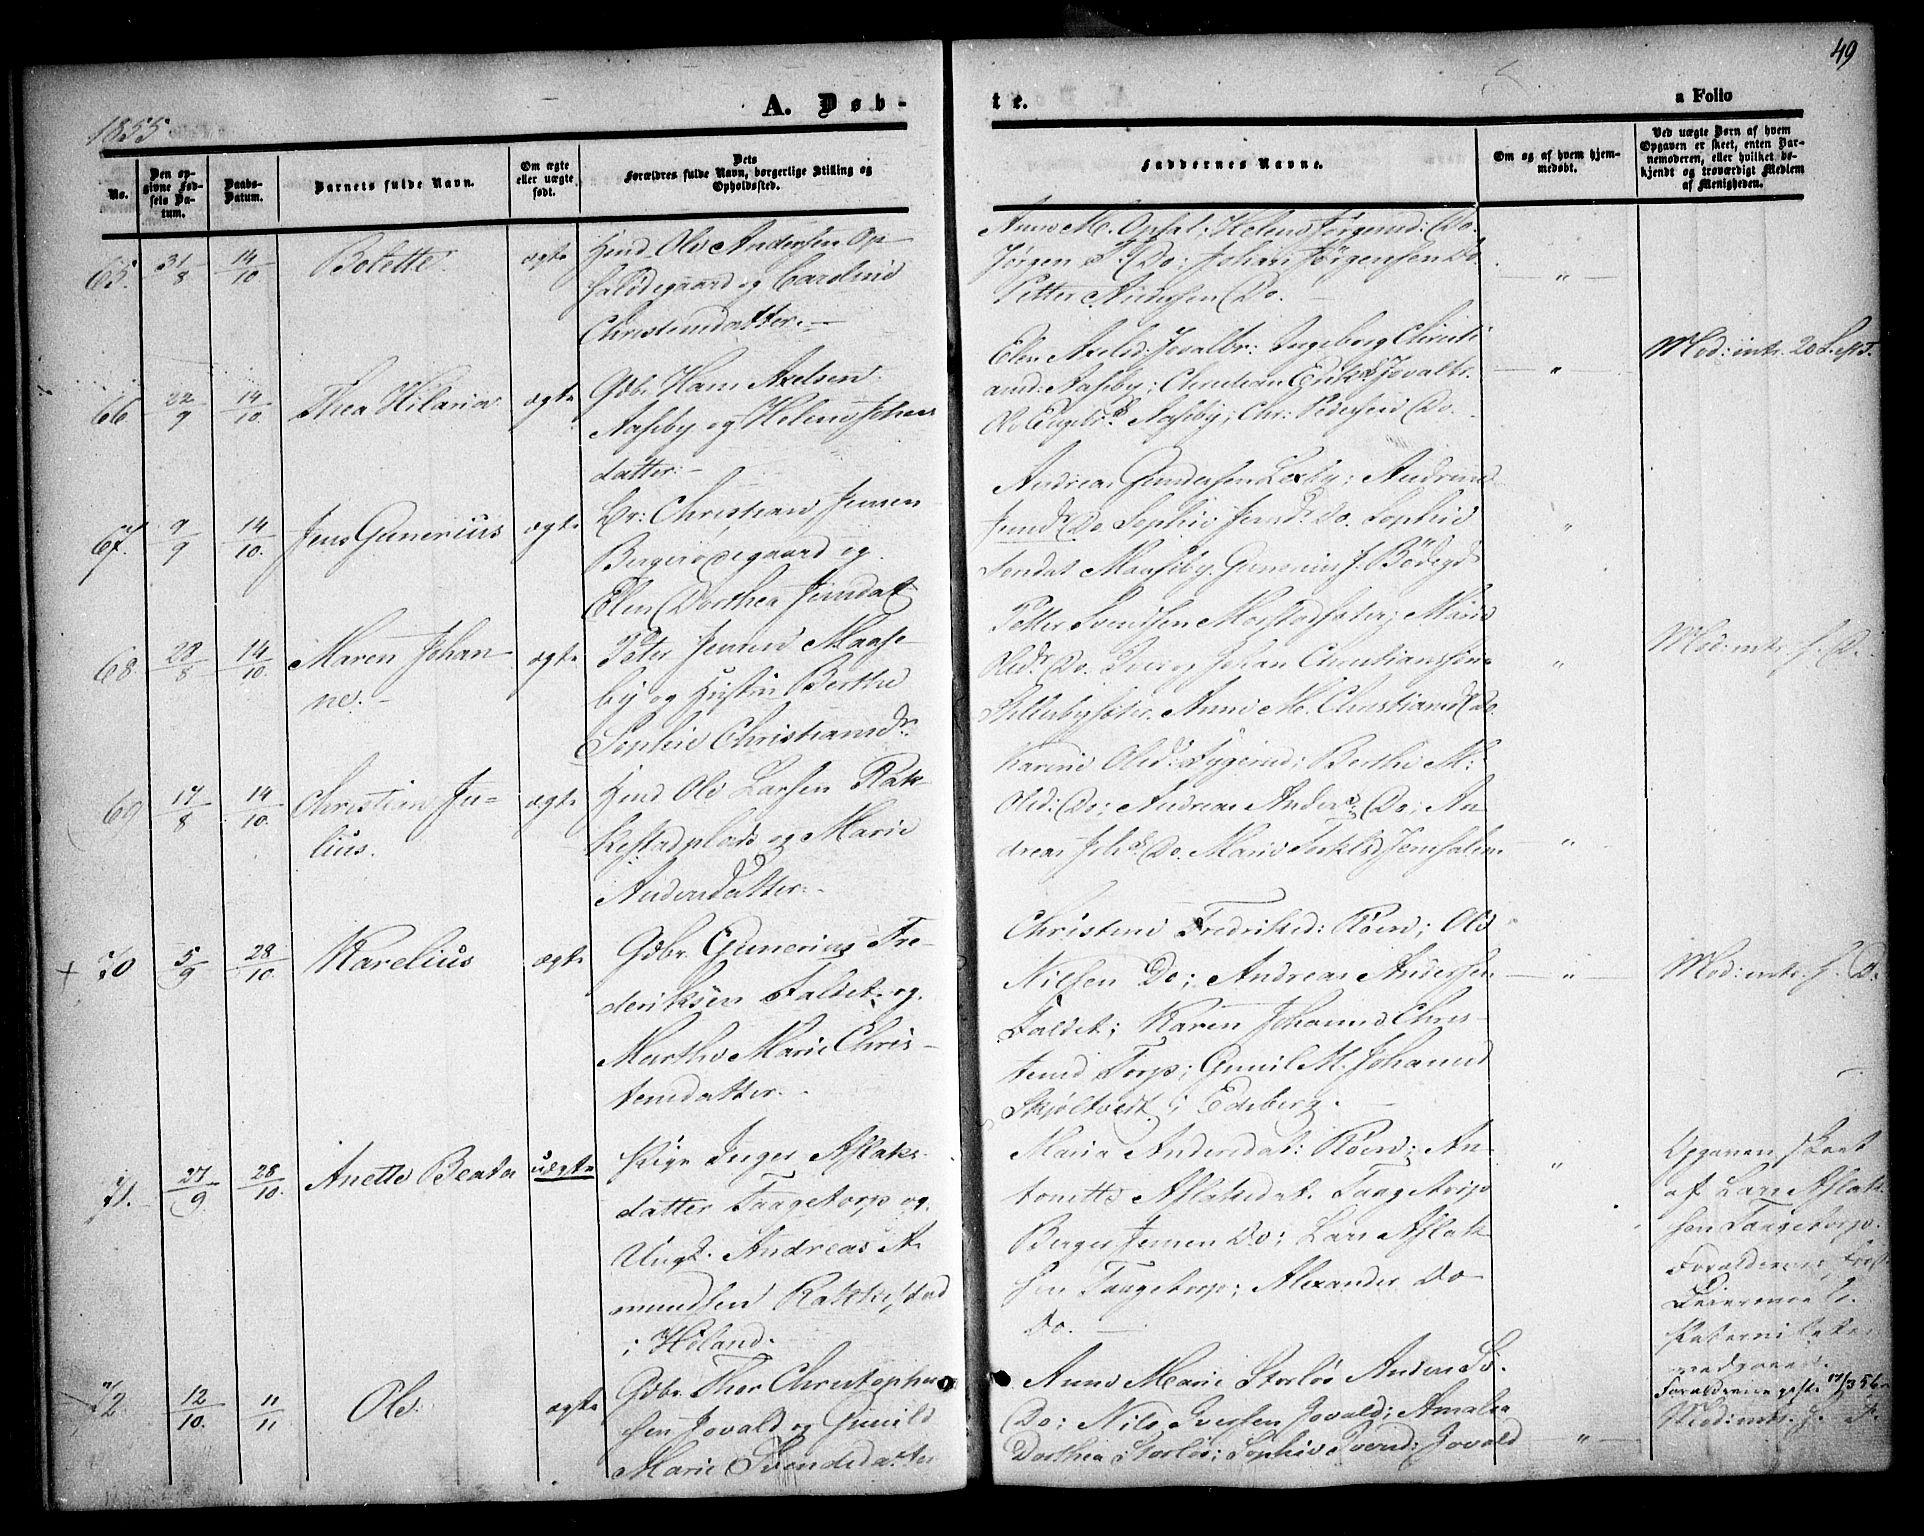 49
A. Døb-
te.
a Folio
1855
No.
Den op-
givne Fød-
sels Da-
tum.
Daabs-
Datum.
Barnets fulde Navn.
Om ægte
eller uægte
født.
Dets
Forældres fulde Navn, borgerlige Stilling og
Opholdssted.
Faddernes Navne.
Om og af hvem hjem-
medøbt.
Ved uægte Børn af hvem
Opgaven er skeet, enten Bar-
nemoderen, eller hvilket be-
kjendt og troværdigt Medlem
af Menigheden.
65. 31/8 14/10 Bolette. ægte
Hmd. Ole Andersen Op-
saldegaard og Caroline
Christensdatter.
Anne M. Opsal: Helene Jørgensd: Do.
Jørgen Do: Johan Jörgensen Do.
Petter Andersen Do.
"
66 22/9 14/10. Thea Hilaria ægte
Gdbr. Hans Axelsen
Aaseby og Helene Johans
datter.
Elen Axelsd: Jovaltr: Ingeborg Christi
ansd: Aaseby; Christian Eriks. Jovaltr.
Ole Engebr. Aaseby; Chr: Pedersen Do.
"
Mod: intr. 20 Sept.
67. 9/9 14/10. Jens Gunerius ægte
Br: Christian Jensen
Bergerødegaard og
Elen Dorthea Jensdat
Andreas Gundersen Lexby; Andrine
Jensdr Do. Sophie Jensd: Do. Sophie
Maaseby. Gunerius J. Bödegd
"
68. 29/8 14/10. Maren Johan-
ne.
ægte
Peter Jensen Maase-
by og Hustru Berthe
Sophie Christiansdr.
Petter Svendsen Morstadsæter; Maria
Olsdr Do. Iver og Johan Christianssen
Anne M. Christiansd Do.
"
Mod: intr. s. D.
69 17/8 14/10. Christian Ju-
lius.
ægte
Hmd Ole Larsen Rak-
kestadplads og Marie
Andersdatter.
Karine Olsd: Bygerud; Berthe M:
Olsd: Do; Andreas Anders: Do; An-
dreas Do. Marie Jerusalem
"
+ 70 5/9 28/10. Karelius ægte
Gdbr. Gunerius Fre-
deriksen Faldet og
Marthe Marie Chris-
tensdatter.
Christine Fredriksd: Röen; Ole
Nilsen Do; Andreas Andersen
Faldet; Karen Johanne Chris-
tensd Torp; Gunil M. Johansd
Skjöltvedt i Edsberg.
"
Mod: intr. s. D.
71. 27/9 28/10. Anette Beata uægte
Pige Inger Aslaks-
datter Taagetorp og
Ungk. Andreas A-
mundsen Rakkestad
i Höland.
Maria Andersdat: Röen; An-
tonette Aslaksdat. Taagetorp
Berger Jensen Do; Lars Aslak-
sen Taagetorp; Alexander Do
Do.
"
Opgaven skeet
af Lars Aslak-
sen Taagetorp.
Forældrenes Første
Leiermaal.
Forældrene gifte 17/3 56
72 12/10. 11/11 Ole ægte
Gdbr. Thor Christophers
sen Jovald og Gunild
Marie Svendsdatter
Anne Marie Storløs Anders
Do; Nils Iversen Jovald; Amalia
Dorthea Storløs; Sophie Iversd: Jovald
"
Mod: intr. s. D.